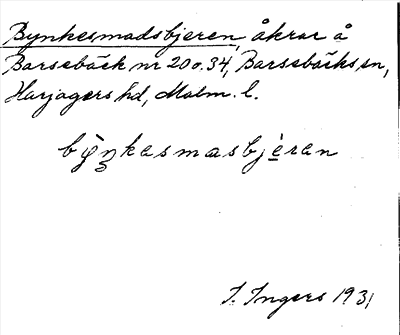 Bynkesmadsbjeren, åkrar å
Barsebäck nr 20 o. 34, Barsebäcks sn,
Harjagers hd, Malm. l.
bỳŋkasmasbjèran
I. Ingers 1931